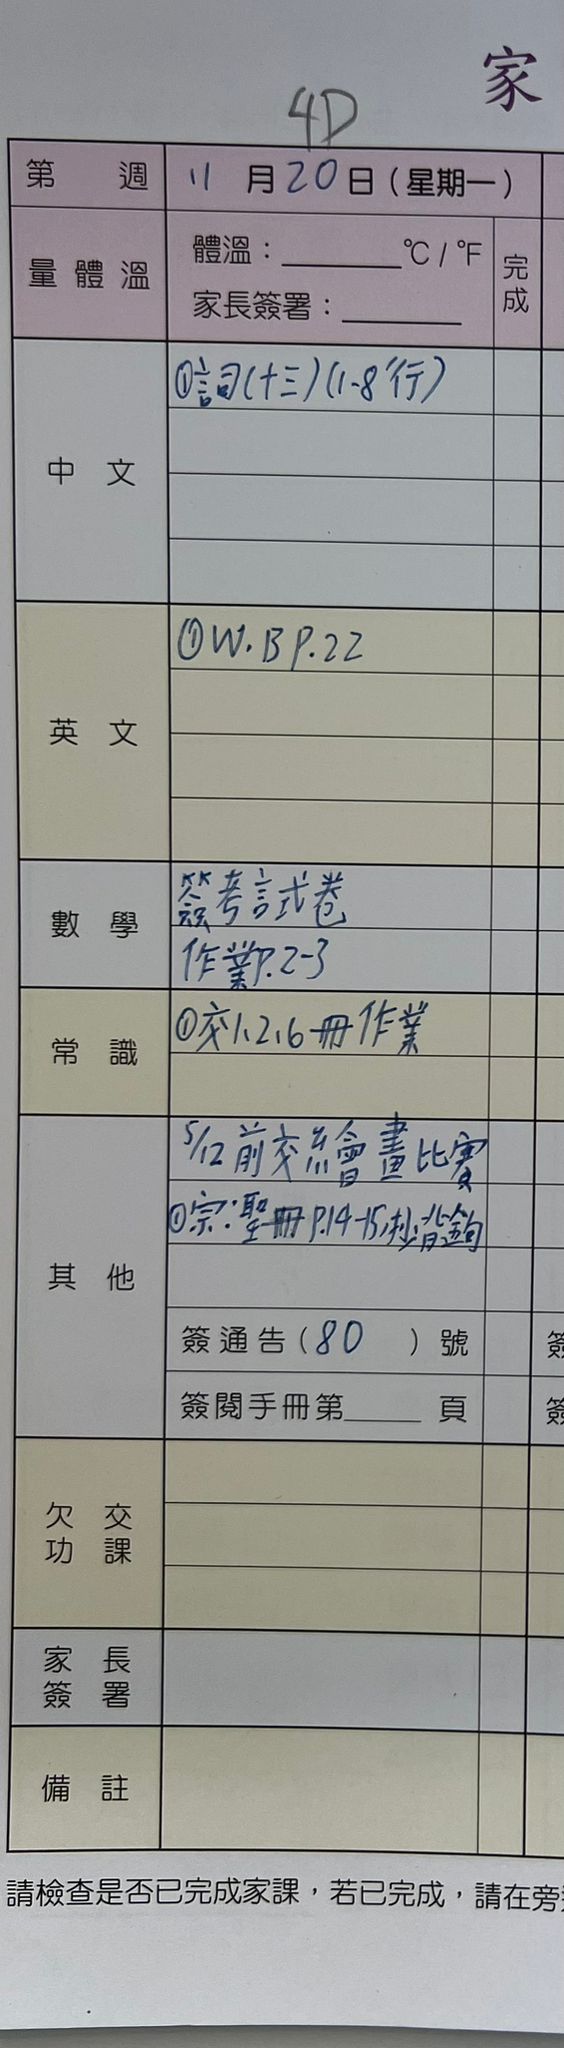 家
4D
第 週 11月20日(星期一)
量體溫 體溫：______°C / °F 完成
家長簽署：______
中文 ①詞(十三)(1-8行)
英文 ①W.B P.22
數學 簽考試卷
作業P.2-3
常識 ①交1,2,6冊作業
其他 5/12前交繪畫比賽
①宗:聖冊P.14-15,抄背
簽通告(80)號 簽
簽閱手冊第____頁 簽
欠交功課
家長簽署
備註
請檢查是否已完成家課，若已完成，請在旁